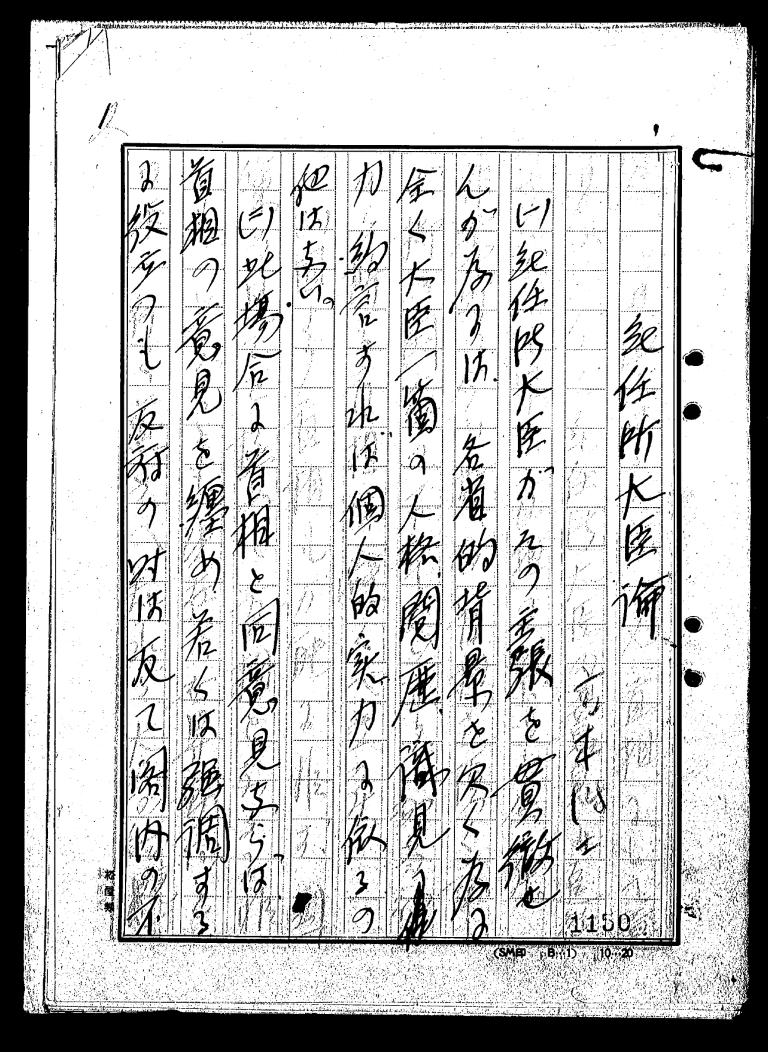 無任所大臣論
高木博士
(一)無任所大臣がその主張を貫徹せ
んが為には、各省的背景を欠く為に
全く大臣一箇の人格、閲歴、識見、
力、約言すれば個人的実力に依るの
他はない。
(二)此場合に首相と同意見ならば、
首相の意見を纏め若くは強調する
に役立つも反対の時は反て閣内の不
1150
(SMEI) B-1) 10-20